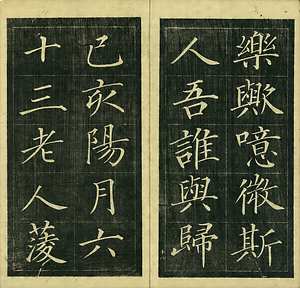 樂歟噫微斯
人吾誰與歸
己亥陽月六
十三老人蓤